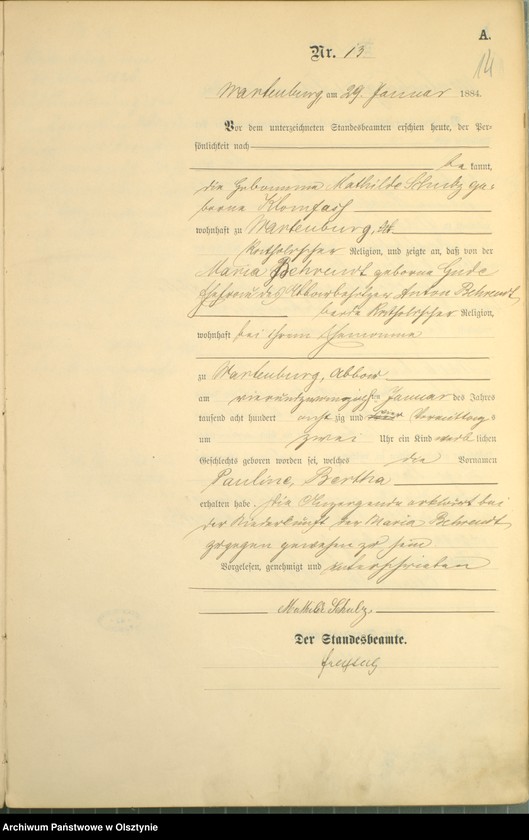 A.
14
Nr. 13
Wartenburg am 29. Januar 1884.
Vor dem unterzeichneten Standesbeamten erschien heute, der Per-
sönlichkeit nach
be kannt,
die Hebamme Mathilde Schulz ge-
borene Klomfaß
wohnhaft zu Wartenburg,
katholischer Religion, und zeigte an, daß von der
Maria Behrendt geborene Gude
Ehefrau des Abbaubesitzer Anton Behrendt,
beide katholischer Religion,
wohnhaft bei ihrem Ehemanne
zu Wartenburg, Abbau
am vierundzwanzigsten Januar des Jahres
tausend acht hundert acht zig und vier Vormittags
um zwei Uhr ein Kind weib lichen
Geschlechts geboren worden sei, welches die Vornamen
Pauline, Bertha
erhalten habe. Die Anzeigende erklärt bei
der Niederkunft der Maria Behrendt
zugegen gewesen zu sein
Vorgelesen, genehmigt und unterschrieben
Mathilde Schulz.
Der Standesbeamte.
Archiwum Państwowe w Olsztynie